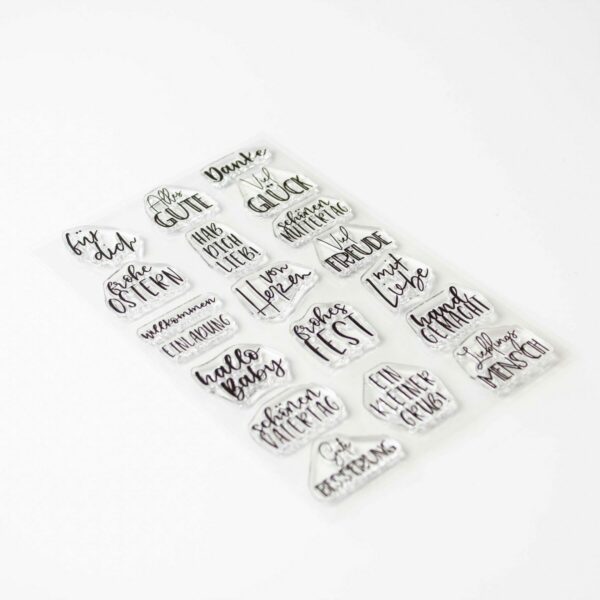 Danke
Alles
GUTE
Viel
GLÜCK
für
dich
HAB
DICH
LIEB!
schönen
MUTTERTAG
frohe
OSTERN
von
Herzen
Viel
FREUDE
willkommen
EINLADUNG
frohes
FEST
mit
Liebe
hallo
Baby
hand
GEMACHT
schönen
VATERTAG
EIN
KLEINER
GRUß!
Lieblings
MENSCH
Gute
BESSERUNG